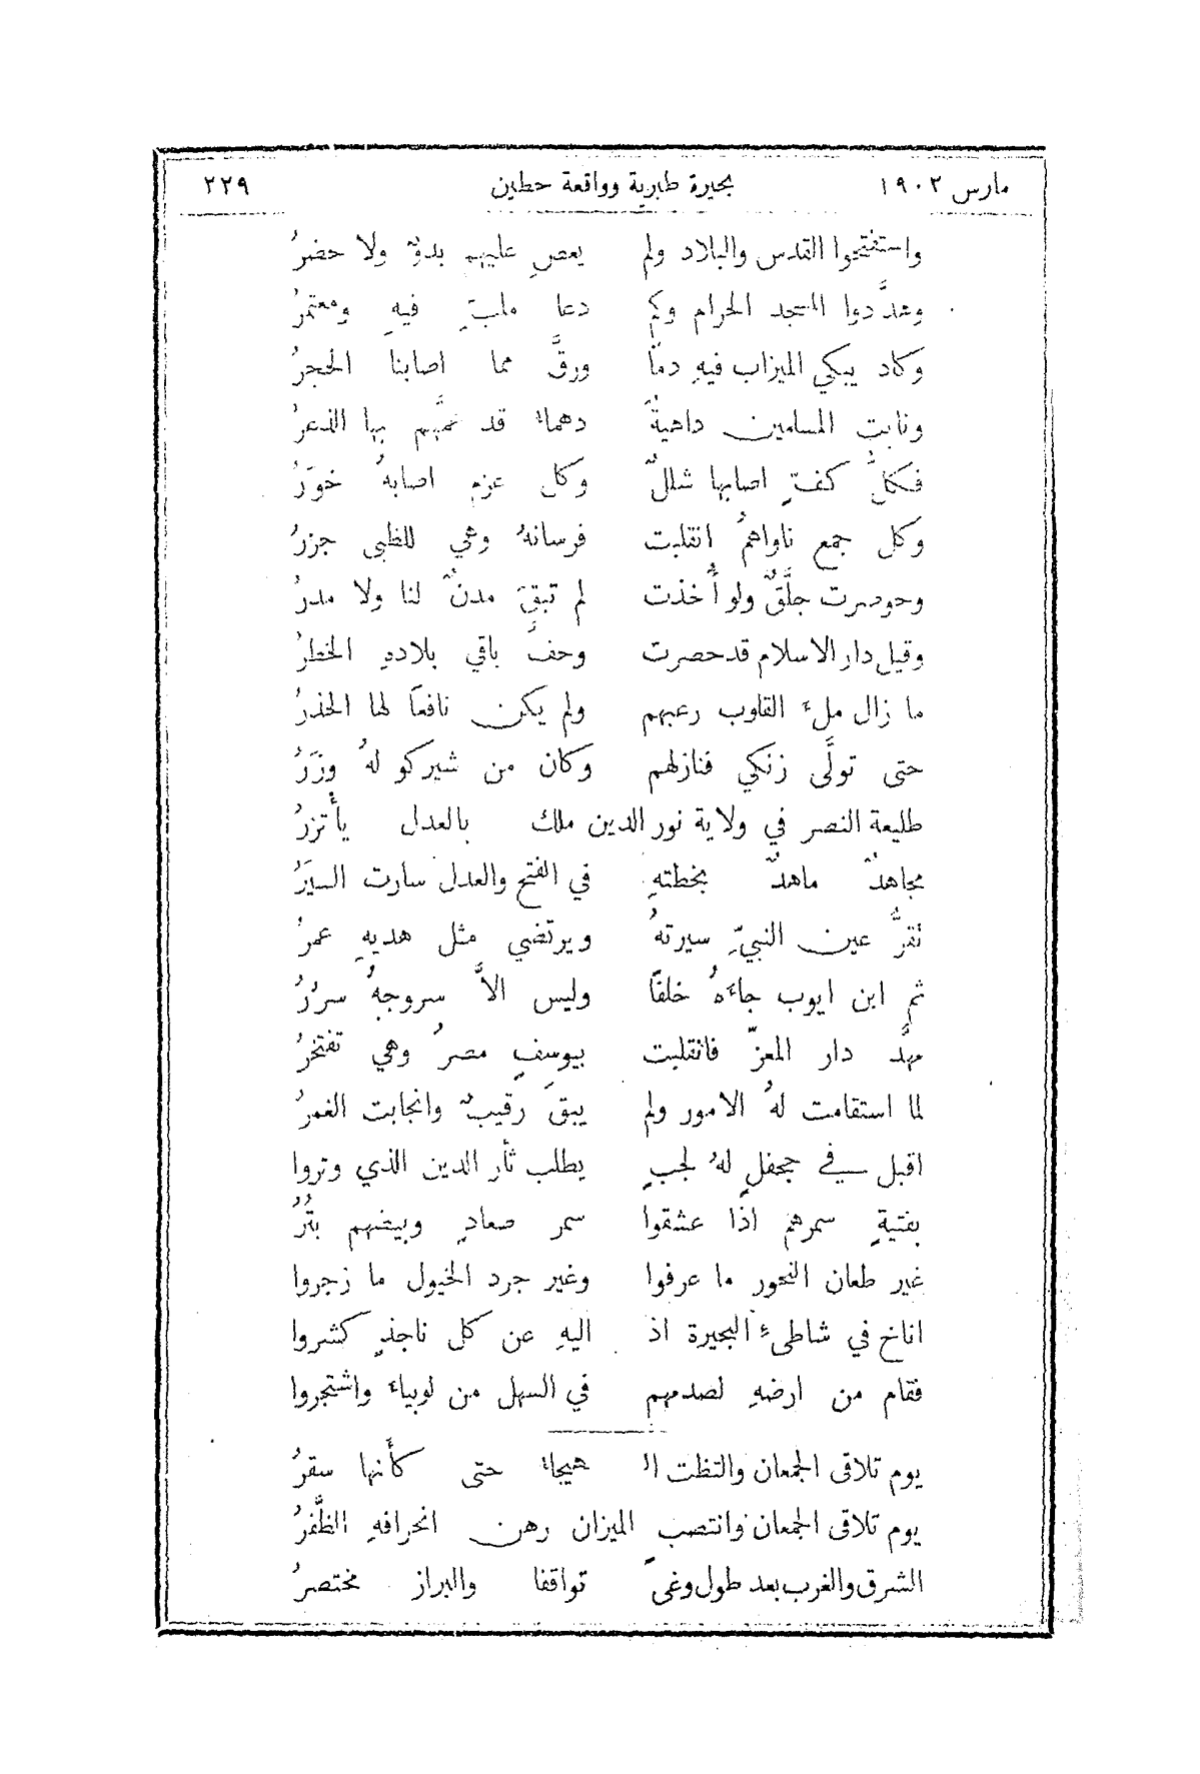 مارس ١٩٠٢ بحيرة طبرية وواقعة حطين ٢٢٩
واستفتحوا القدس والبلاد ولم يعصِ عليهم بدوٌ ولا حضرُ
وهدَّدوا المسجد الحرام وكم دعا ملبٍّ فيهِ ومعتمرُ
وكاد يبكي الميزاب فيهِ دمًا ورقَّ مما اصابنا الحجرُ
ونابتِ المسلمين داهيةٌ دهماءُ قد عمَّهم بها الذعرُ
فكلُّ كفٍّ اصابها شللٌ وكل عزمٍ اصابهُ خوَرُ
وكل جمع ناواهمُ انقلبت فرسانهُ وهي للظبى جزرُ
وحوصرت جلَّقٌ ولو أُخذت لم تبقَ مدنٌ لنا ولا مدرُ
وقيل دار الاسلام قد حصرت وحفَّ باقي بلادهِ الخطرُ
ما زال ملءَ القلوب رعبهم ولم يكن نافعًا لها الحذرُ
حتى تولَّى زنكي فنازلهم وكان من شيركو لهُ وزَرُ
طليعة النصر في ولاية نور الدين ملك بالعدل يأتزرُ
مجاهدٌ ماهدٌ بخطتهِ في الفتح والعدل سارت السيَرُ
تقرُّ عين النبيّ سيرتهُ ويرتضي مثل هديهِ عمرُ
ثم ابن ايوب جاءَهُ خلفًا وليس الاَّ سروجهُ سرُرُ
مهَّد دار المعزّ فانقلبت بيوسفٍ مصرُ وهي تفتخرُ
لما استقامت لهُ الامور ولم يبقَ رقيبٌ وانجابت الغمرُ
اقبل في جحفلٍ لهُ لجبٍ يطلب ثأر الدين الذي وتروا
بفتيةٍ سمرهم اذا عشقوا سمر صعادٍ وبيضهم بتُرُ
غير طعان النحور ما عرفوا وغير جرد الخيول ما زجروا
اناخ في شاطىءِ البحيرة اذ اليهِ عن كل ناجذٍ كشروا
فقام من ارضهِ لصدمهم في السهل من لوبياءَ واشتجروا
يوم تلاقى الجمعان والتظت ال هيجاءُ حتى كأنها سقرُ
يوم تلاقى الجمعان وانتصب الميزان رهن انحرافهِ الظَّفرُ
الشرق والغرب بعد طول وغىً تواقفا والبراز مختصرُ